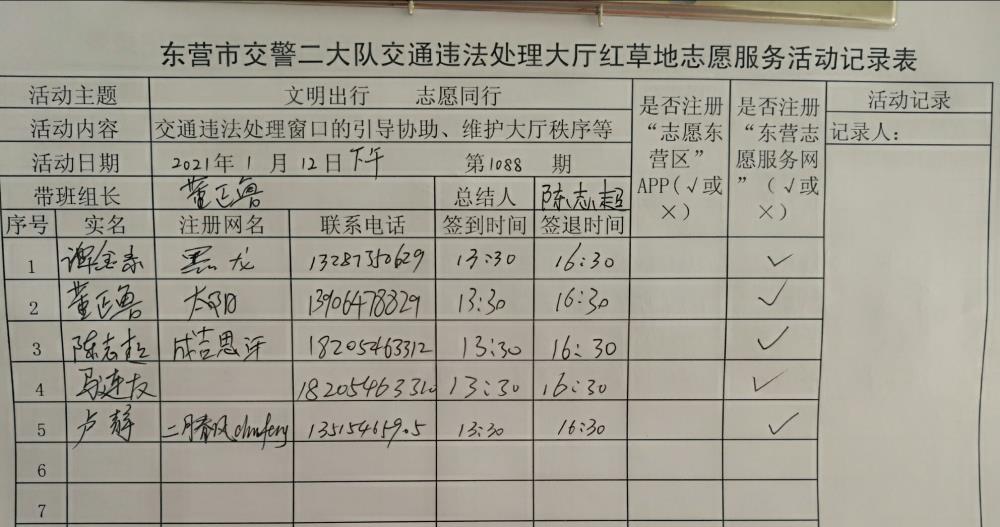 东营市交警二大队交通违法处理大厅红草地志愿服务活动记录表
活动主题 文明出行 志愿同行 是否注册“志愿东营区”APP(√或×) 是否注册“东营志愿服务网”(√或×) 活动记录
活动内容 交通违法处理窗口的引导协助、维护大厅秩序等 记录人：
活动日期 2021年1月12日下午 第1088期
带班组长 董正鲁 总结人 陈志超
序号 实名 注册网名 联系电话 签到时间 签退时间
1 谭金泰 黑龙 13287350629 13:30 16:30 √
2 董正鲁 太阳 13906478829 13:30 16:30 √
3 陈志超 成吉思汗 18205463312 13:30 16:30 √
4 马连友 18205463310 13:30 16:30 √
5 卢静 二月春风 13:30 16:30 √
6
7